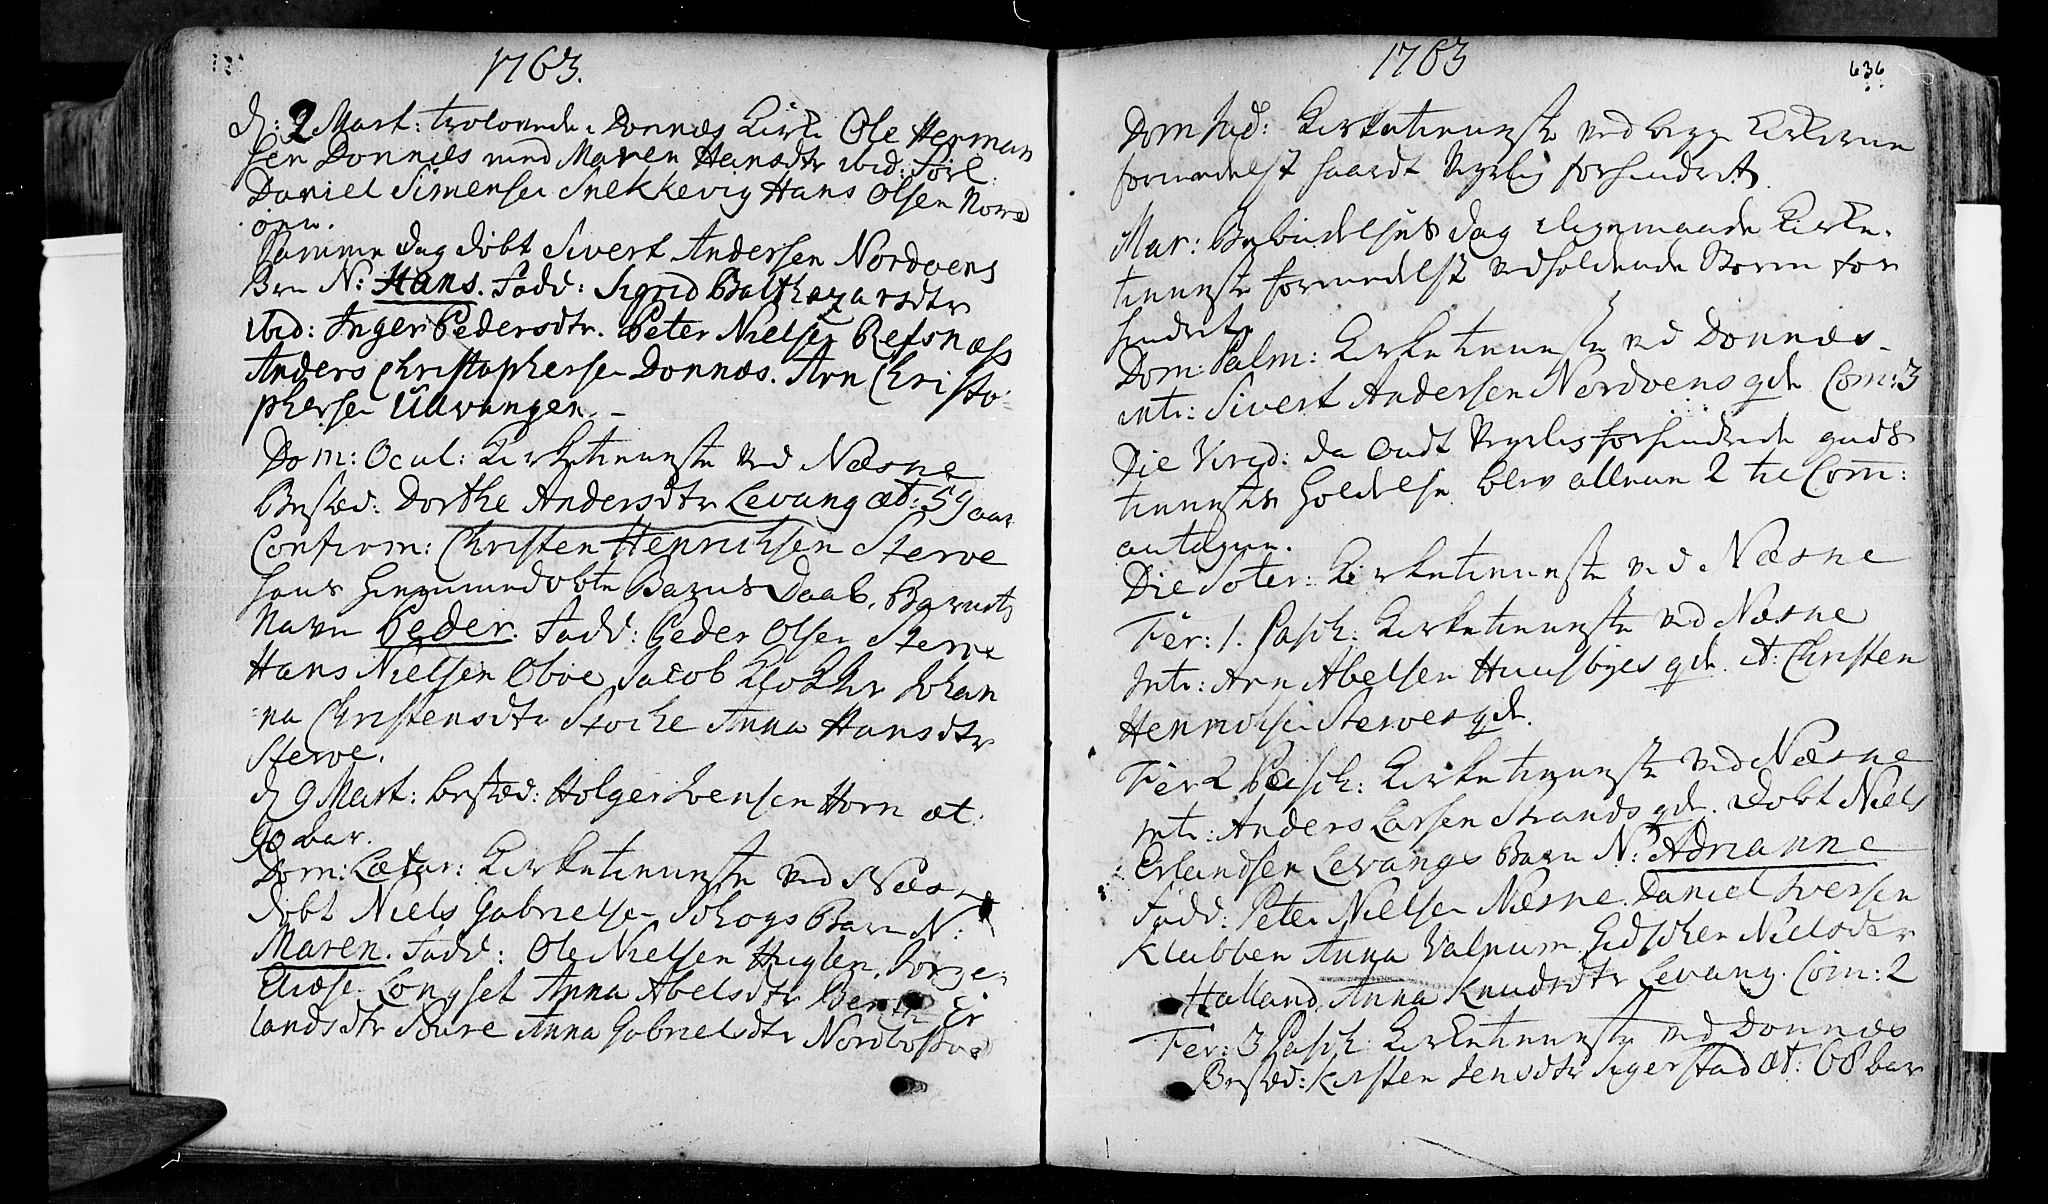 1763.
d: 2 Mart: trolovede i Dønnes Kirke Ole Herman
sen Dønnes med Maren Hansdtr ibid: Forl:
Daniel Simensen Snekkevig Hans Olsen Nord
øen.
Samme dag døbt Sivert Andersen Nordøens
Brn N: Hans. Fadd: Sigrid Balthazarsdtr
ibid: Inger Pedersdtr. Peter Nielsen Refsnæss
Anders Christophersen Donnæs. Arn Christo-
phersen Udvangen. –
Dom: Ocul: Kirketieneste ved Næsne
Bested: Dorthe Andersdtr Levang æt: 59 aar
Confirm: Christen Henrichsen Sterve
hans hiemmedøbte Barns Daab, Barnets
Navn Peder. Fadd: Peder Olsen Sterve
Hans Nielsen Oboe Jacob Klokker Johan
na Christensdtr Stoche Anna Hansdtr
Sterve.
d 9 Mart: bested: Holger Iversen Horn æt:
90 aar.
Dom: Lætar: Kirketieneste ved Næsne
døbt Niels Gabrielsen Schogs Barn N:
Maren. Fadd: Ole Nielsen Huglen,
Longset Anna Abelsdtr Er
landsdtr Anna Gabrielsdtr
1763
636
Dom Jud: Kirketieneste ved begge Kirkerne
formedelst haardt Veyrlig forhindret.
Mar: Bebudelses dag iligemaade Kirke-
tieneste formedelst vedholdende Storm for
hindret.
Dom: Palm: Kirketieneste ved Donnæs
intr: Sivert Andersen Nordøens qde Com: 3
Die Virid: da ondt Veyrlig forhindrede guds
tienestes holdelse blev alleene 2 til Com:
antagen.
Die Soter: Kirketieneste ved Næsne
Fer: 1. Pasch: Kirketieneste ved Næsne
Intr: Arn Abelsen Huusbyes qde. it: Christen
Henrichsen Sterves qde.
Fer 2 Pasch: Kirketieneste ved Næsne
intr: Anders Larsen Strands qde. Døbt Niels
Erlandsen Levangs Barn N: Adrianne
Fadd: Peter Nielsen Næsne. Daniel Iversen
Klubben Anna Valnum Nielsdtr
Halland, Anna Knudsdtr Levang. Com: 2
Fer: 3 Pasch: Kirketieneste ved Donnæs
Bested: Kirsten Jensdtr Sigerstad æt: 68 aar